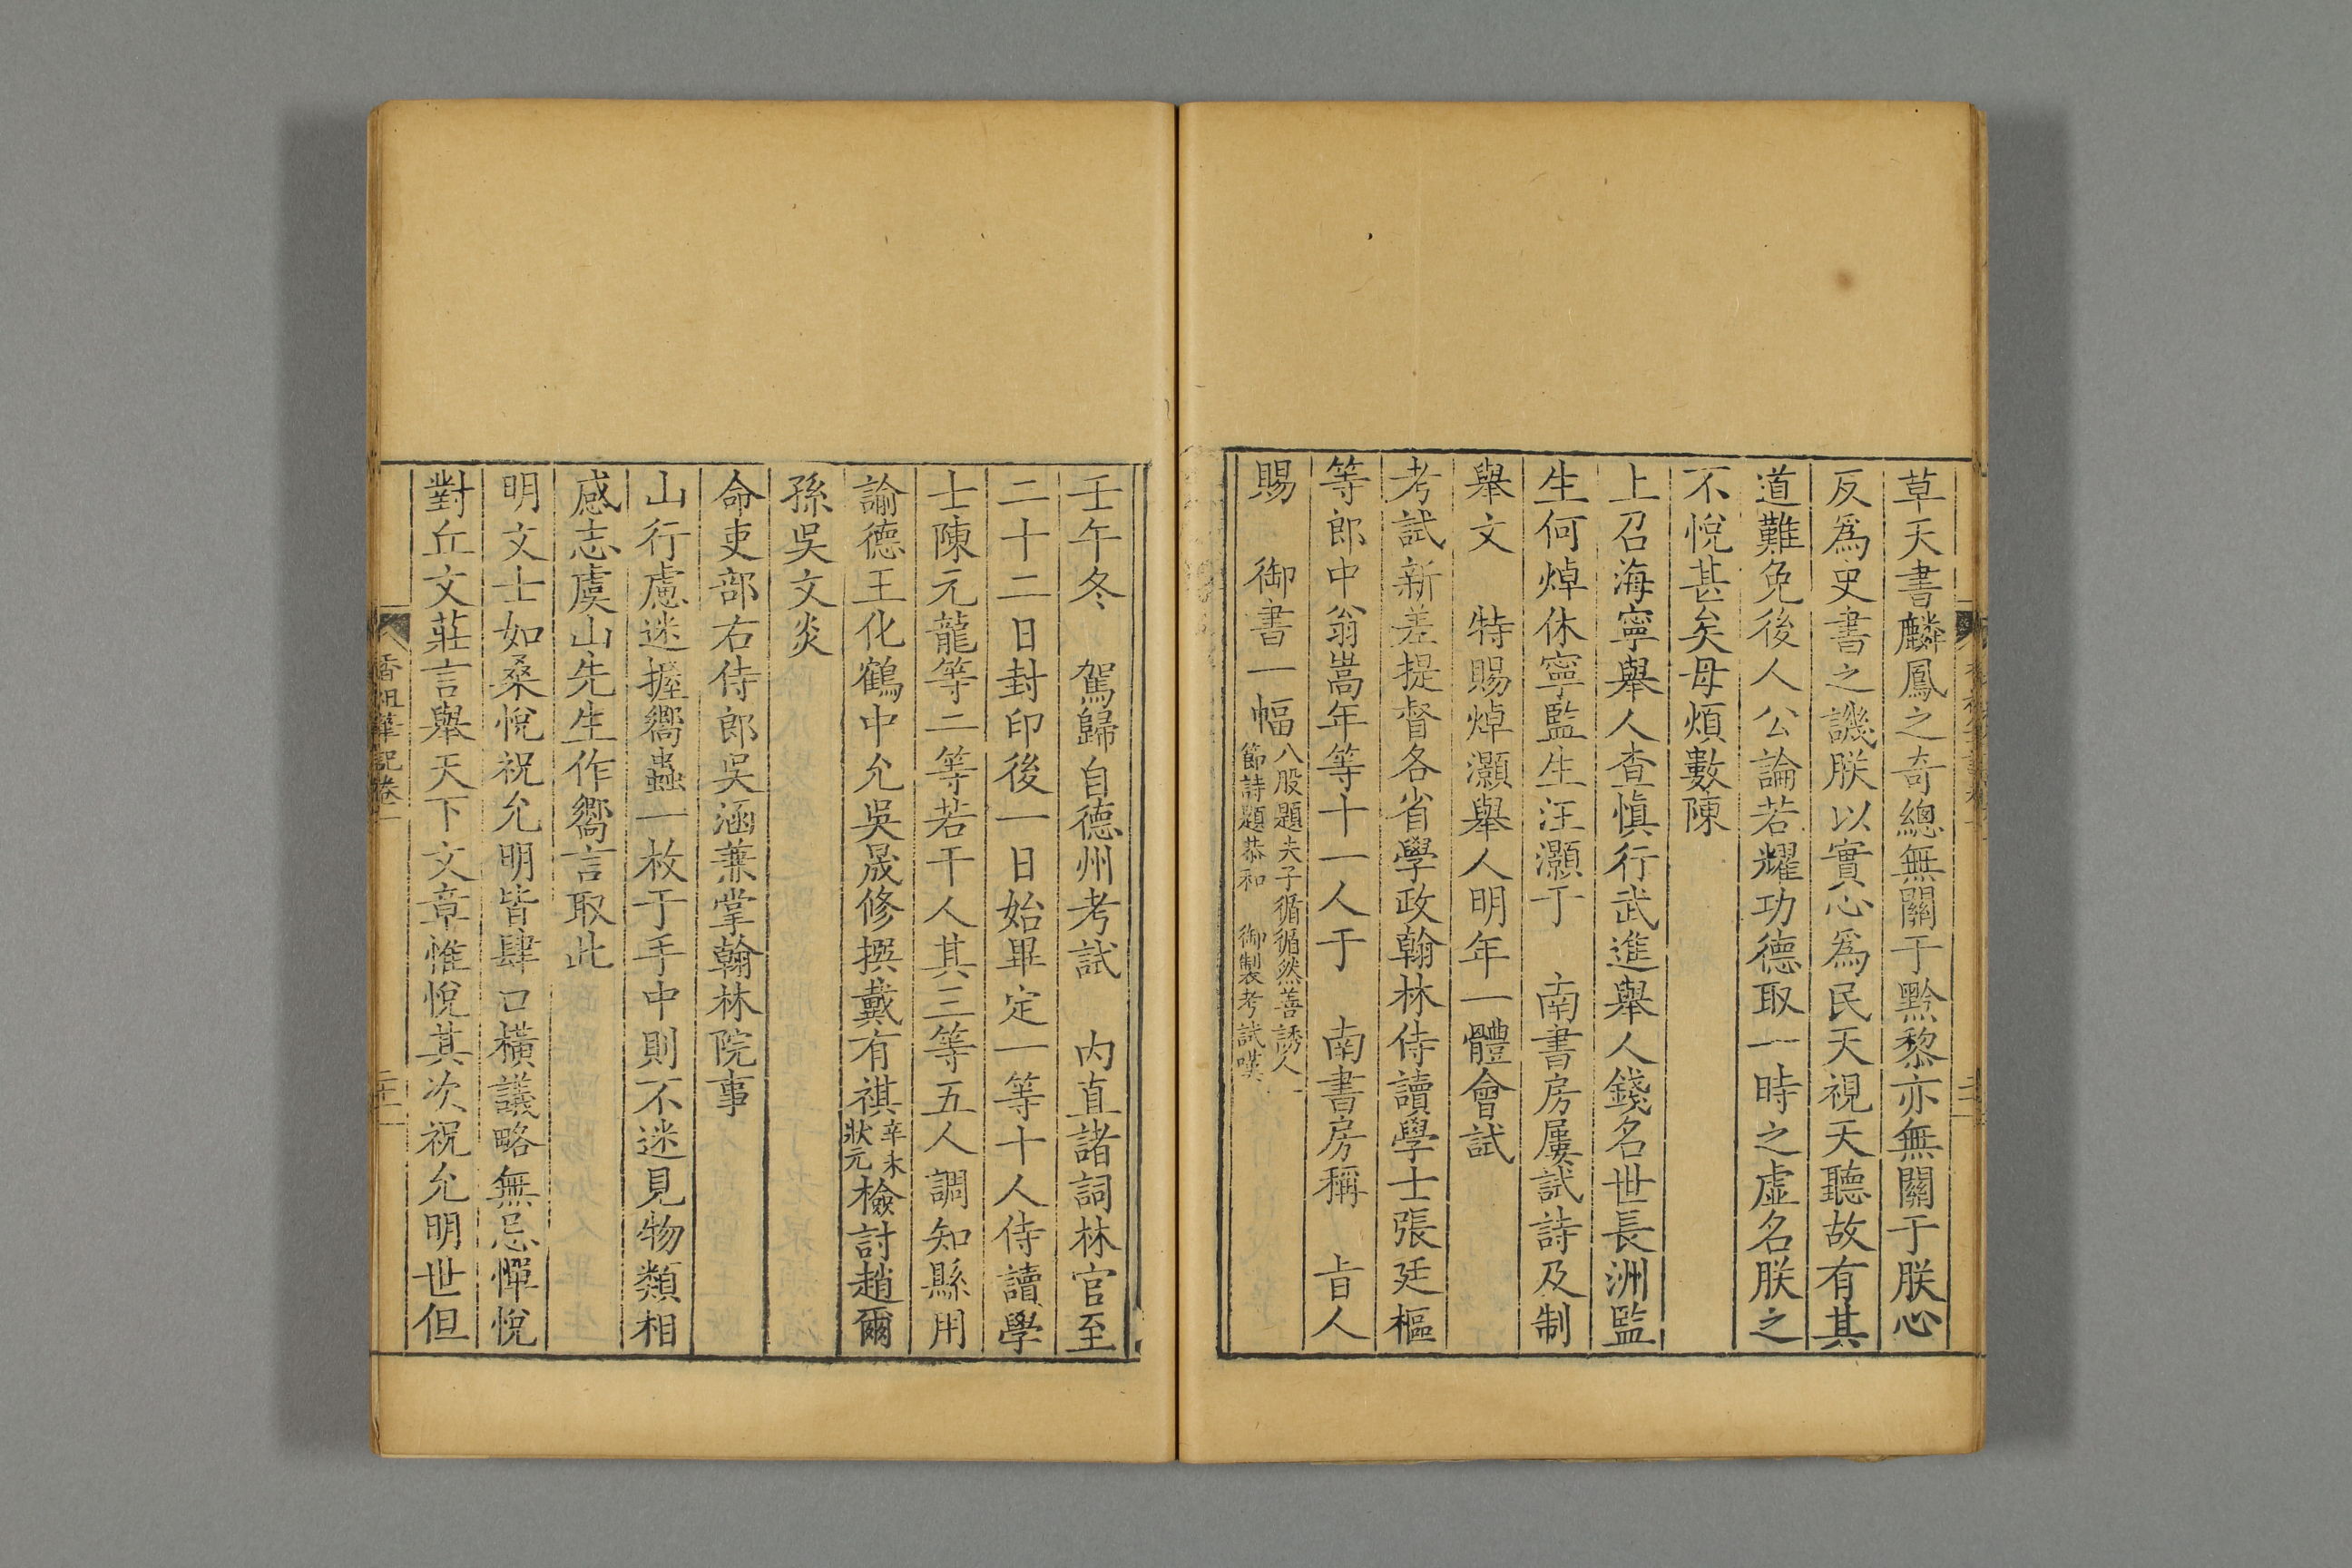 草天書麟鳳之奇總無關于黔黎亦無關于朕心
反爲史書之譏朕以實心爲民天視天聽故有其
道難免後人公論若耀功德取一時之虛名朕之
不悅甚矣毋煩數陳
上召海寧舉人查慎行武進舉人錢名世長洲監
生何焯休寧監生汪灝于　南書房屢試詩及制
舉文　特賜焯灝舉人明年一體會試
考試新差提督各省學政翰林侍讀學士張廷樞
等郎中翁嵩年等十一人于　南書房稱　旨人
賜　御書一幅八股題夫子循循然善誘人一
節詩題恭和　御製考試嘆
壬午冬　駕歸自德州考試　內直諸詞林官至
二十二日封印後一日始畢定一等十人侍讀學
士陳元龍等二等若干人其三等五人調知縣用
諭德王化鶴中允吳晟修撰戴有祺辛未
狀元檢討趙爾
孫吳文炎
命吏部右侍郎吳涵兼掌翰林院事
山行慮迷握嚮蟲一枚于手中則不迷見物類相
感志虞山先生作嚮言取此
明文士如桑悅祝允明皆肆口橫議略無忌憚悅
對丘文莊言舉天下文章惟悅其次祝允明世但
香祖筆記卷一
二十一